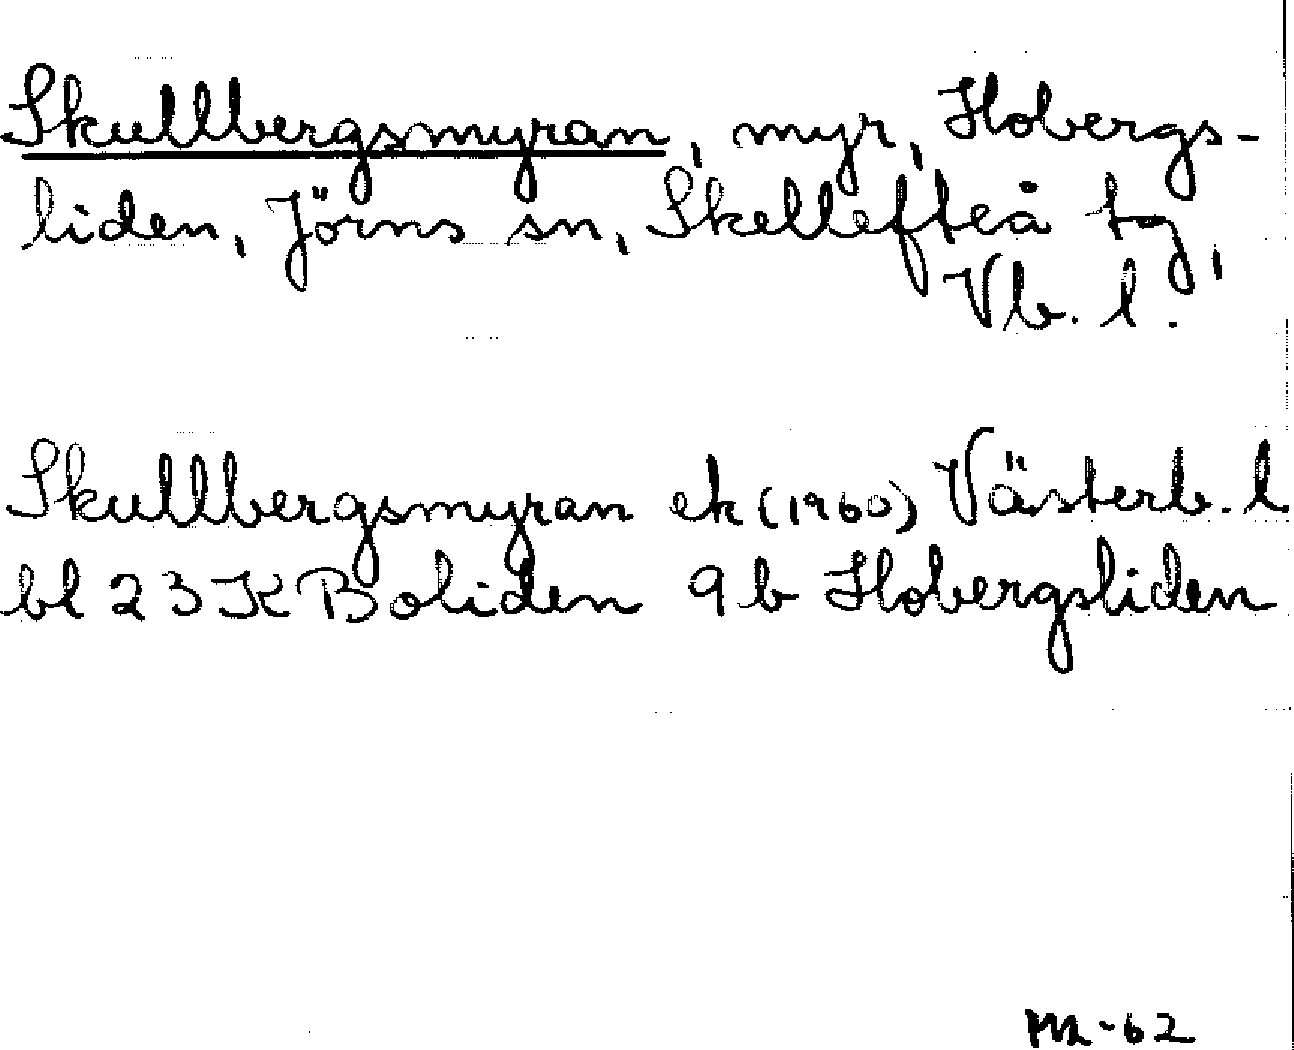 Skullbergsmyran, myr, Hobergs-
liden, Jörns sn, Skellefteå tg,
Vb. l.
Skullbergsmyran ek (1960) Västerb. l
bl 23 K Boliden 9 b Hobergsliden
-62